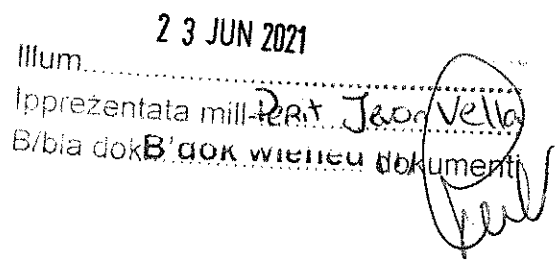 23 JUN 2021
Illum..........
Ippreżentata mill-Perit Jason Vella
B/bla dok B'dok wieħed dokumenti